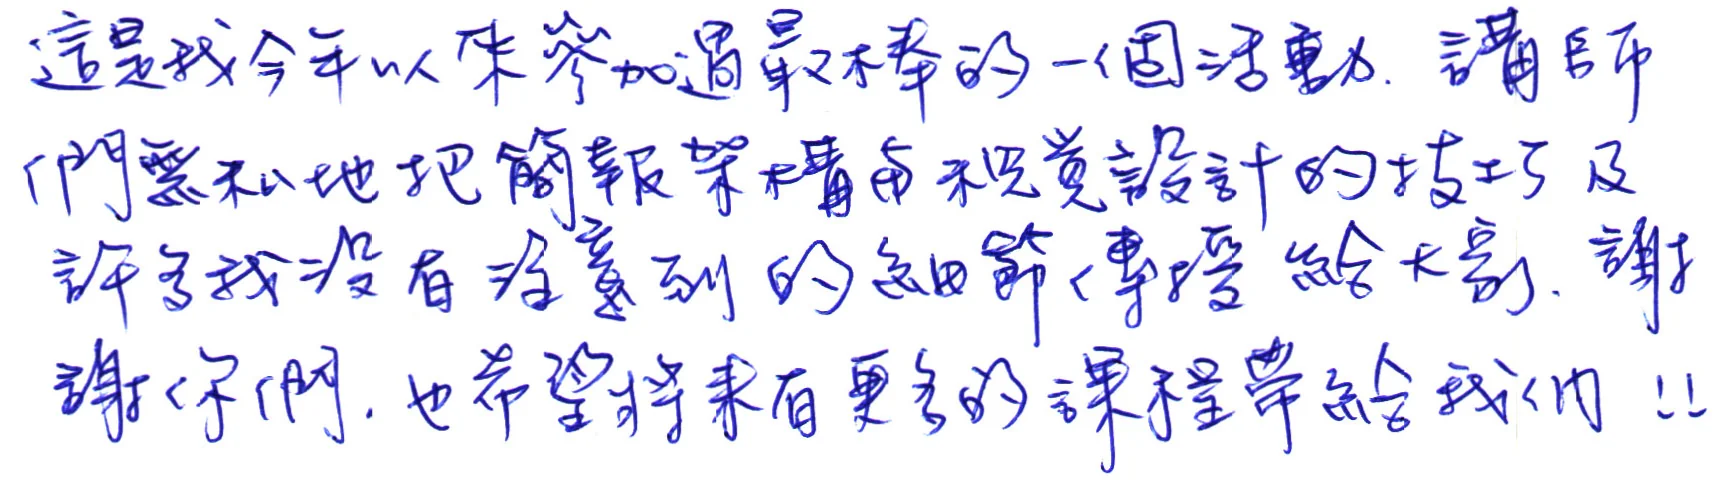 這是我今年以來參加過最棒的一個活動. 講師
們無私地把簡報架構與視覺設計的技巧及
許多我沒有注意到的細節傳授給大家. 謝
謝你們. 也希望將來有更多的課程帶給我們!!